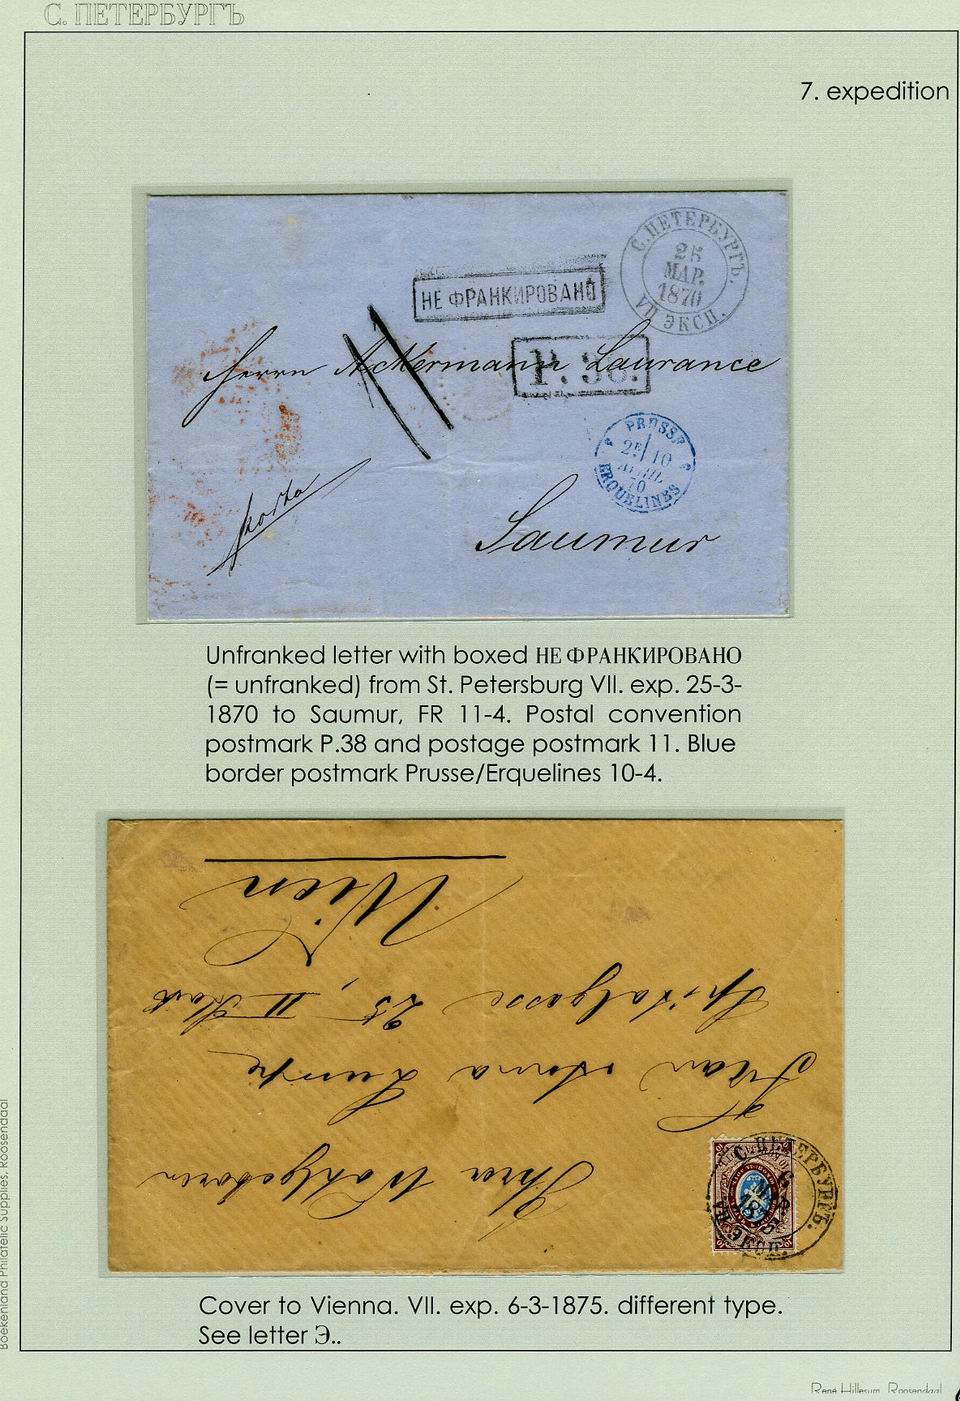 С. ПЕТЕРБУРГЪ
7. expedition
С. ПЕТЕРБУРГЪ.
25
МАР.
1870
VII ЭКСП.
НЕ ФРАНКИРОВАНО
11
Herrn Ackermann Laurance
P. 38.
PRUSSE
2E 10
AVRIL
70
ERQUELINES
porto
Saumur
Unfranked letter with boxed НЕ ФРАНКИРОВАНО
(= unfranked) from St. Petersburg VII. exp. 25-3-
1870 to Saumur, FR 11-4. Postal convention
postmark P.38 and postage postmark 11. Blue
border postmark Prusse/Erquelines 10-4.
Ihro Wohlgeboren
Frau Anna
Spitalgasse 25, II
Wien
С. ПЕТЕРБУРГЪ.
6
МАР
1875
VII ЭКСП.
Cover to Vienna. VII. exp. 6-3-1875. different type.
See letter Э..
Boekenland Philatelic Supplies, Roosendaal
René Hillesum, Roosendaal